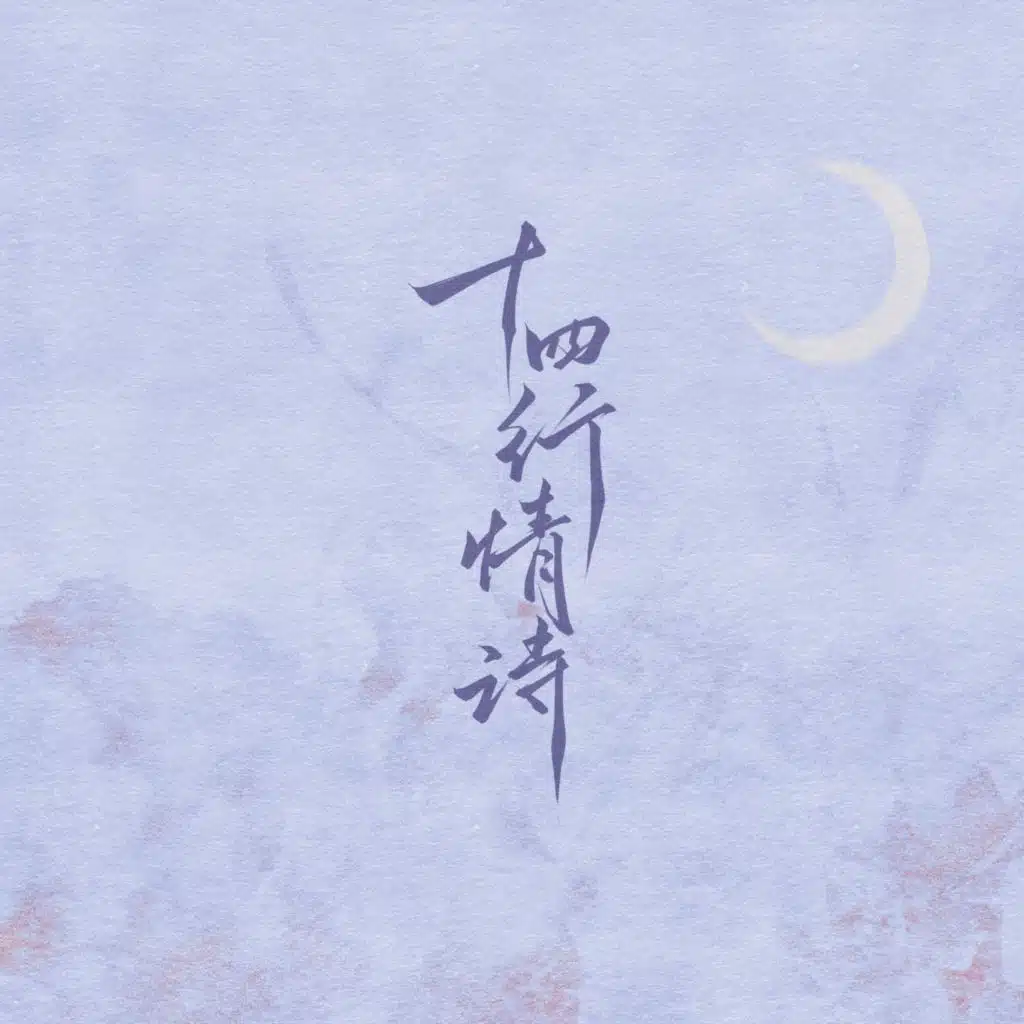 十四行情诗